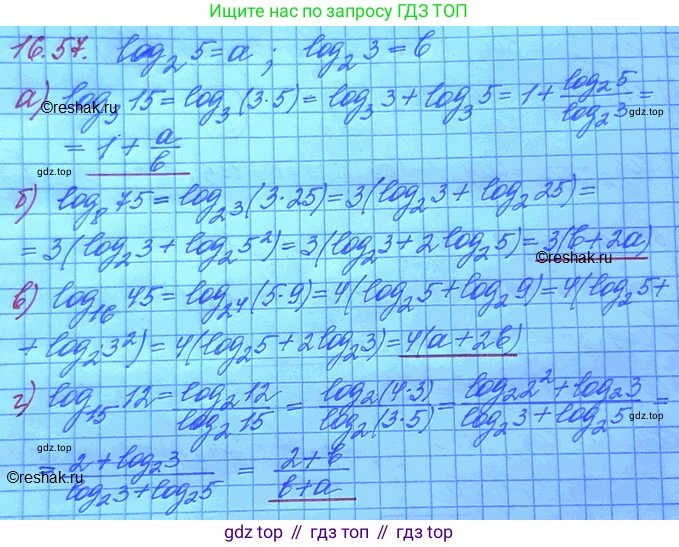 Ищите нас по запросу ГДЗ ТОП
16.57. log₂ 5 = a; log₂ 3 = b
а) log₃ 15 = log₃ (3·5) = log₃ 3 + log₃ 5 = 1 + log₂5/log₂3 =
©reshak.ru
gdz.top
= 1 + a/b
gdz.top
б) log₈ 75 = log₂³ (3·25) = 3(log₂ 3 + log₂ 25) =
= 3(log₂ 3 + log₂ 5²) = 3(log₂ 3 + 2 log₂ 5) = 3(b + 2a)
©reshak.ru
в) log₁₆ 45 = log₂⁴ (5·9) = 4(log₂ 5 + log₂ 9) = 4(log₂ 5 +
©reshak.ru
+ log₂ 3²) = 4(log₂ 5 + 2 log₂ 3) = 4(a + 2b)
г) log₁₅ 12 = log₂ 12/log₂ 15 = log₂(4·3)/log₂(3·5) = log₂ 2² + log₂ 3/log₂ 3 + log₂ 5 =
gdz.top
gdz.top
= 2 + log₂ 3/log₂ 3 + log₂ 5 = 2 + b/b + a
©reshak.ru
gdz.top
gdz top // гдз топ // gdz top